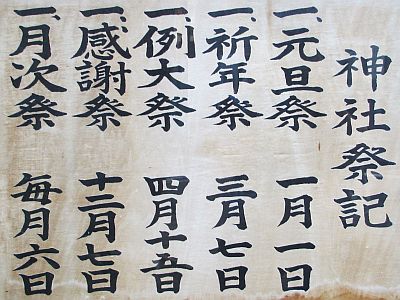 神社祭記
一、元旦祭 一月一日
一、祈年祭 三月七日
一、例大祭 四月十五日
一、感謝祭 十二月七日
一、月次祭 毎月六日